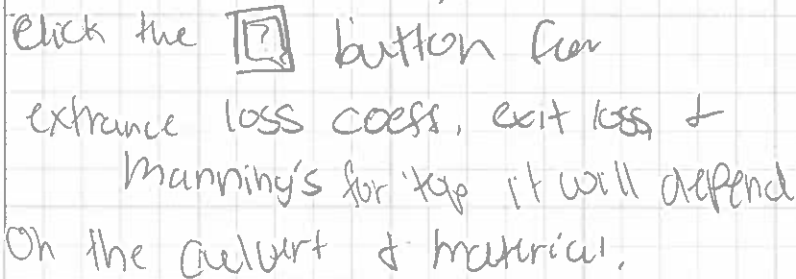 Click the [?] button for
extrance loss coeff, exit loss &
Manning's for top it will depend
On the culvert & material.